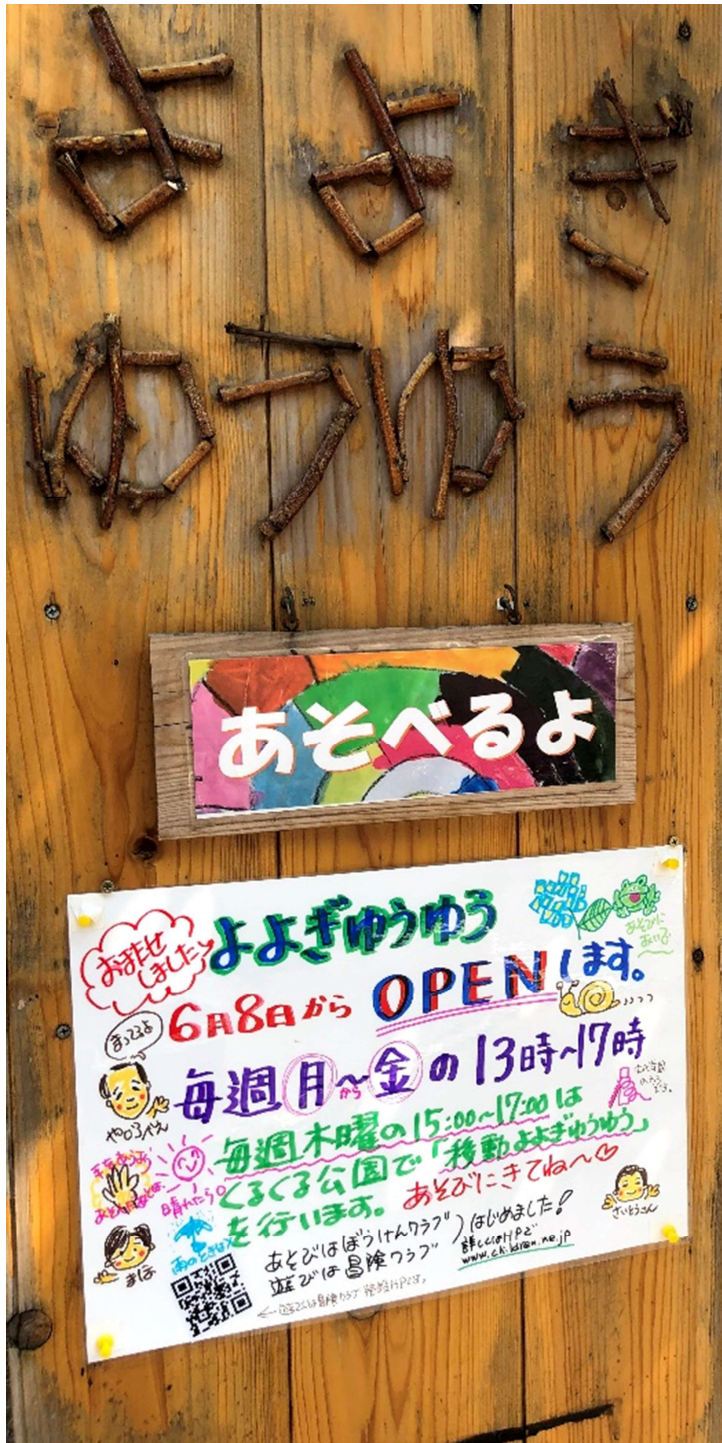 よよぎ
ゆうゆう
あそべるよ
おまたせ
しました
よよぎゆうゆう
6月8日から
OPENします。
まってるよ
毎週月から金の13時~17時
毎週木曜の15:00~17:00は
くるくる公園で「移動よよぎゆうゆう」
を行います。
あそびにきてね~
晴れたら。
まほ
さいとうさん
あそびはぼうけんクラブ
遊びは冒険クラブ
はじめました!
詳しくはHPで
www.children.ne.jp